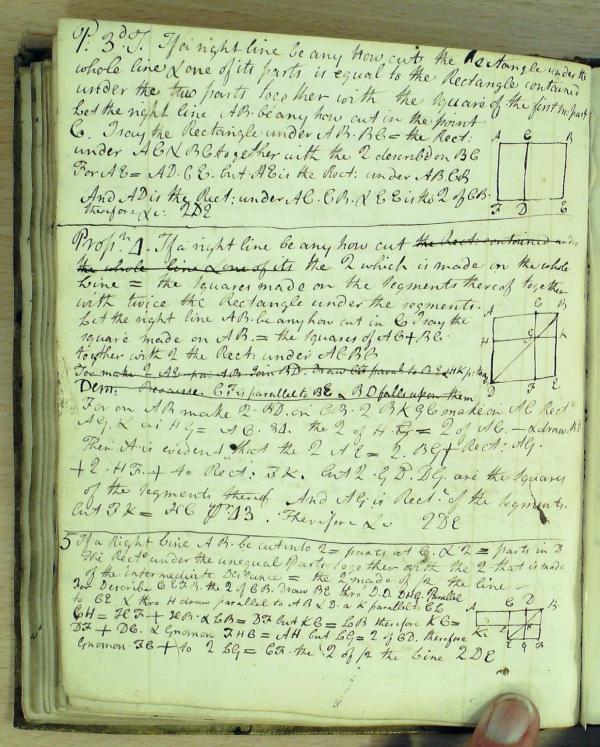 P. 3d. T. If a right line be any how cut, the Rectangle under the
whole line & one of its parts is equal to the Rectangle contained
under the two parts together with the square of the first m. part
Let the right line AB be any how cut in the point
C. I say the Rectangle under AB. BC = the Rect:
under AC & BC together with the 2 described on BC
For AE = AD. CE. but AE is the Rect: under AB. CB
And AD is the Rect: under AC. CB. & CE is the 2 of CB.
therefore &c: 2DE
A C B
F D E
Propn. 4. If a right line be any how cut the Rect: contained under
the whole line & one of its the 2 which is made on the whole
Line = the Squares made on the Segments thereof together
with twice the Rectangle under the segments.
Let the right line AB be any how cut in C I say the
square made on AB. = the squares of AC + BC
together with 2 the Rect: under ACBC
A C B
H G K
D F E
For make 2 AE join BD. Draw CF paral to BE & HK
Dem: Because. CF is parallel to BE & BD falls upon them
For on AB make 2. BD. on CB. 2 BKGC make on AC Rect
AG. & HG = AC. the 2 of H.G = 2 of AC. & draw BD
Then it is evident that the 2 AE = 2. BG + Rect: AG.
+ 2. HF. + to Rect: FK. but 2. GD. DG. are the squares
of the segments thereof And AG is Rect. of the segments.
but FK = HC Therefore &c 2DE
5 If a Right Line AB. be cut into 2 = parts at C. & 2 = parts in D
The Rect. under the unequal Parts together with the 2 that is made
of the intermediate Distance = the 2 made of ½ the line
For Describe CEFB. the 2 of CB. Draw BE thro D. D. DHG. Parallel
to CE & thro H draw parallel to AB & D. a K parallel to CL
CH = HF + HB: & LB = DF but KC = LB therefore KC =
DF + DC. & Gnomon FHG = AH but LG = 2 of CD. therefore
Gnomon FG + to 2 LG = CF. the 2 of ½ the Line 2DE
C D B
E G F